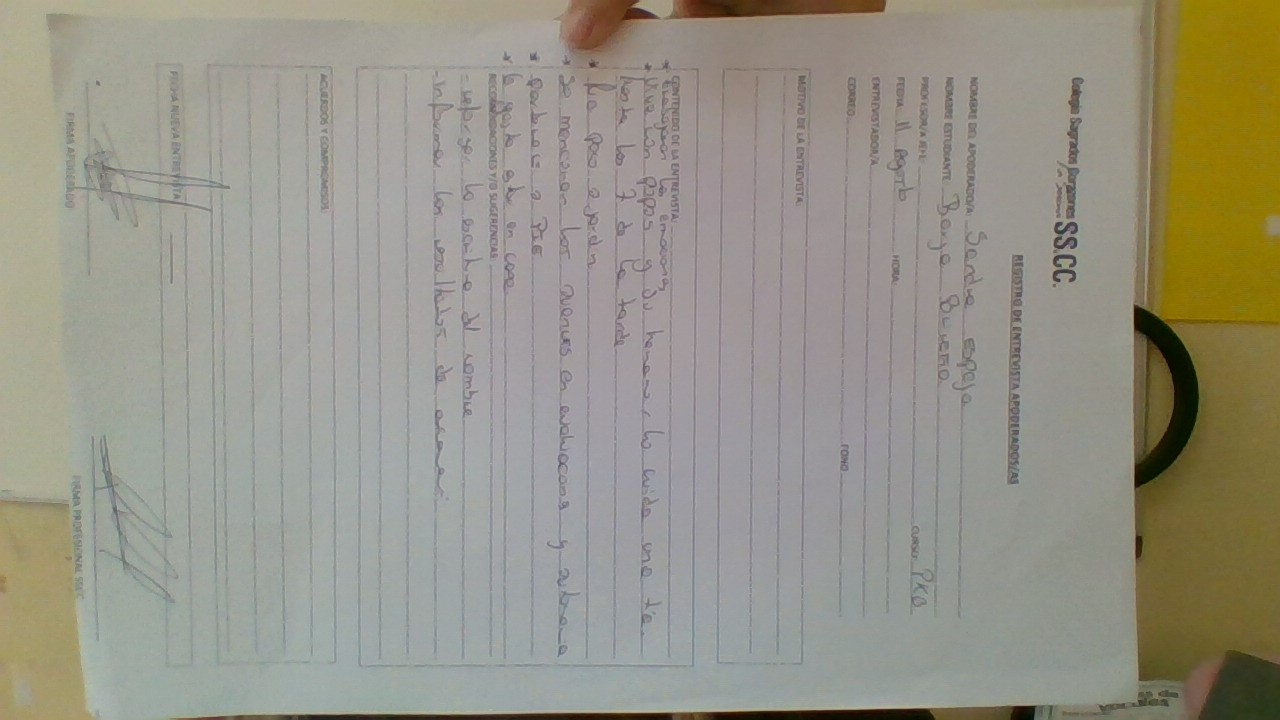 Colegio Sagrados Corazones SS.CC.
REGISTRO DE ENTREVISTA APODERADOS/AS
NOMBRE DEL APODERADO/A: Sandra espeja
NOMBRE ESTUDIANTE:
PROFESOR/A JEFE: CURSO: PKB
FECHA: 11 Agosto HORA:
ENTREVISTADOR/A
CORREO: FONO
MOTIVO DE LA ENTREVISTA:
CONTENIDO DE LA ENTREVISTA:
* las emociones
* Vive con papas y su hermano, lo cuida una tia
hasta las 7 de la tarde
* a jardin
* Se mencionan los avances en evaluaciones y
* a PIE
* le gusta estar en casa
RECOMENDACIONES Y/O SUGERENCIAS:
- reforzar la escritura del nombre
- Informar los resultados de
ACUERDOS Y COMPROMISOS:
FECHA NUEVA ENTREVISTA
FIRMA APODERADO FIRMA PROFESIONAL SSCC